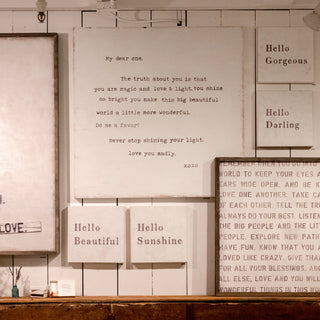 My dear one,
The truth about you is that
you are magic and love & light. You shine
so bright you make this big beautiful
world a little more wonderful.
Do me a favor?
Never stop shining your light.
love you madly.
xoxo
Hello
Gorgeous
Hello
Darling
Hello
Beautiful
Hello
Sunshine
LOVE.
REMEMBER WHEN YOU GO INTO
WORLD TO KEEP YOUR EYES A
EARS WIDE OPEN. AND BE K
LOVE ONE ANOTHER. TAKE CA
OF EACH OTHER. TELL THE TR
ALWAYS DO YOUR BEST. LISTEN
THE BIG PEOPLE AND THE LITT
PEOPLE. EXPLORE NEW PATH
HAVE FUN. KNOW THAT YOU A
LOVED LIKE CRAZY. GIVE THAN
FOR ALL YOUR BLESSINGS. AB
ALL ELSE, LOVE AND YOU WILL
WONDERFUL THINGS IN THIS WO